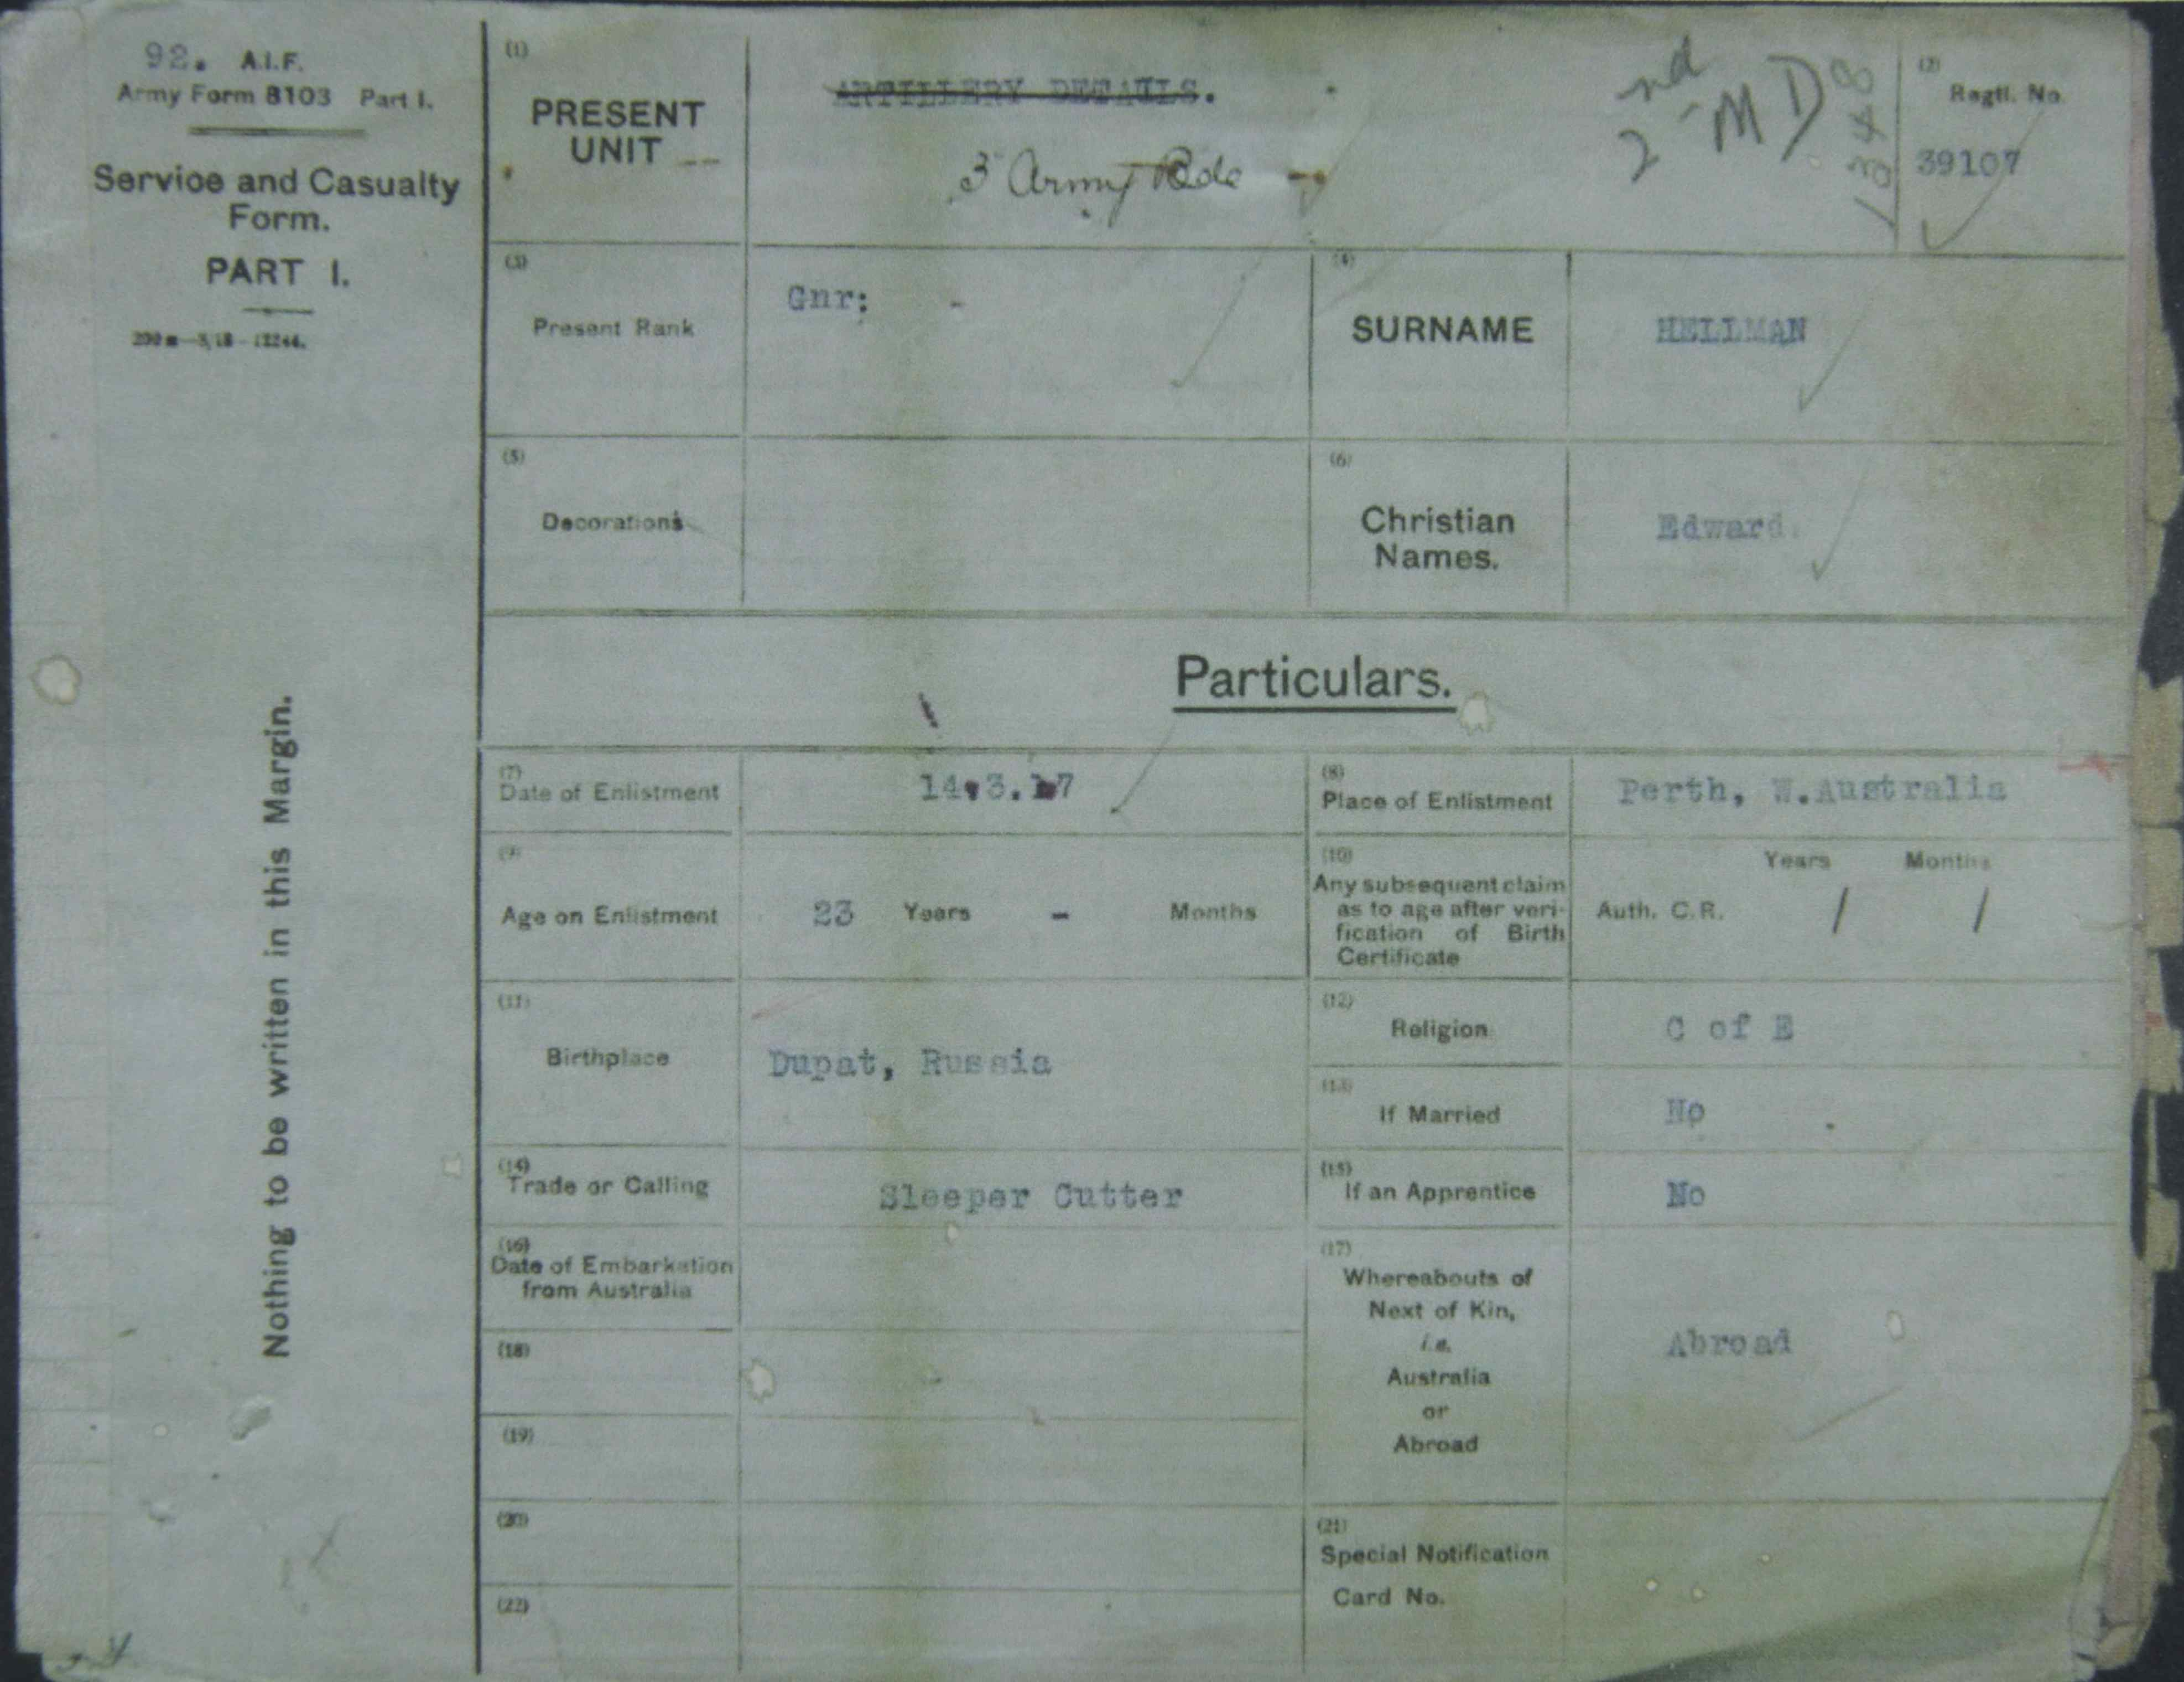 92. A.I.F.
Army Form B103 Part I.
Service and Casualty
Form.
PART I.
Nothing to be written in this Margin.
(1)
PRESENT
UNIT
ARTILLERY DETAILS.
3 Army Bde
2nd MD
(2)
Regtl. No.
39107
(3)
Present Rank
Gnr: -
(4)
SURNAME
HELLMAN
(5)
Decorations
(6)
Christian
Names.
Edward.
Particulars.
(7)
Date of Enlistment
14.3.17
(8)
Place of Enlistment
Perth, W.Australia
(9)
Age on Enlistment
23 Years - Months
(10)
Any subsequent claim
as to age after veri-
fication of Birth
Certificate
Years Months
Auth. C.R. / /
(11)
Birthplace
Dupat, Russia
(12)
Religion
C of E
(13)
If Married
No
(14)
Trade or Calling
Sleeper Cutter
(15)
If an Apprentice
No
(16)
Date of Embarkation
from Australia
(17)
Whereabouts of
Next of Kin,
i.e.
Australia
or
Abroad
Abroad
(18)
(19)
(20)
(21)
Special Notification
Card No.
(22)